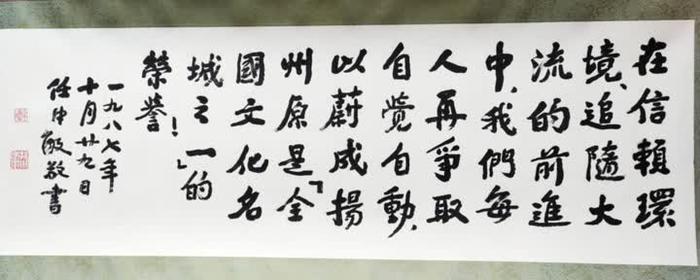 在信賴環
境、追隨大
流的前進
中，我們每
人再爭取
自覺自動，
以蔚成揚
州原是「全
國文化名
城之一」的
榮譽！
一九八七年
十月廿九日
任中敏敬書